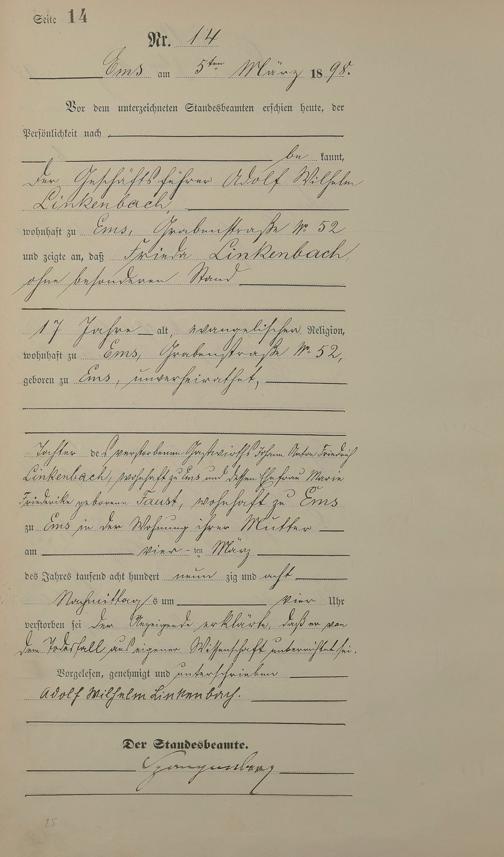 Seite 14
Nr. 14
Ems am 5ten März 1898.
Vor dem unterzeichneten Standesbeamten erschien heute, der
Persönlichkeit nach
be kannt,
der Geschäftsführer Adolf Wilhelm
Linkenbach,
wohnhaft zu Ems, Grabenstraße No 52
und zeigte an, daß Frieda Linkenbach,
ohne besonderen Stand
17 Jahre alt, evangelischer Religion,
wohnhaft zu Ems, Grabenstraße No 52,
geboren zu Ems, unverheirathet,
Tochter des verstorbenen Gastwirths Johann Anton Friedrich
Linkenbach, wohnhaft zu Ems und dessen Ehefrau Marie
Friederike geborene Faust, wohnhaft zu Ems
zu Ems in der Wohnung ihrer Mutter
am vier ten März
des Jahres tausend acht hundert neun zig und acht
Nachmittags um vier Uhr
verstorben sei der Anzeigende erklärte, daß er von
dem Todesfall aus eigener Wissenschaft unterrichtet sei.
Vorgelesen, genehmigt und unterschrieben
Adolf Wilhelm Linkenbach.
Der Standesbeamte.
25